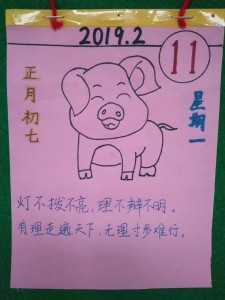 2019.2
11
正月初七
星期一
灯不拨不亮,理不辩不明。
有理走遍天下,无理寸步难行。